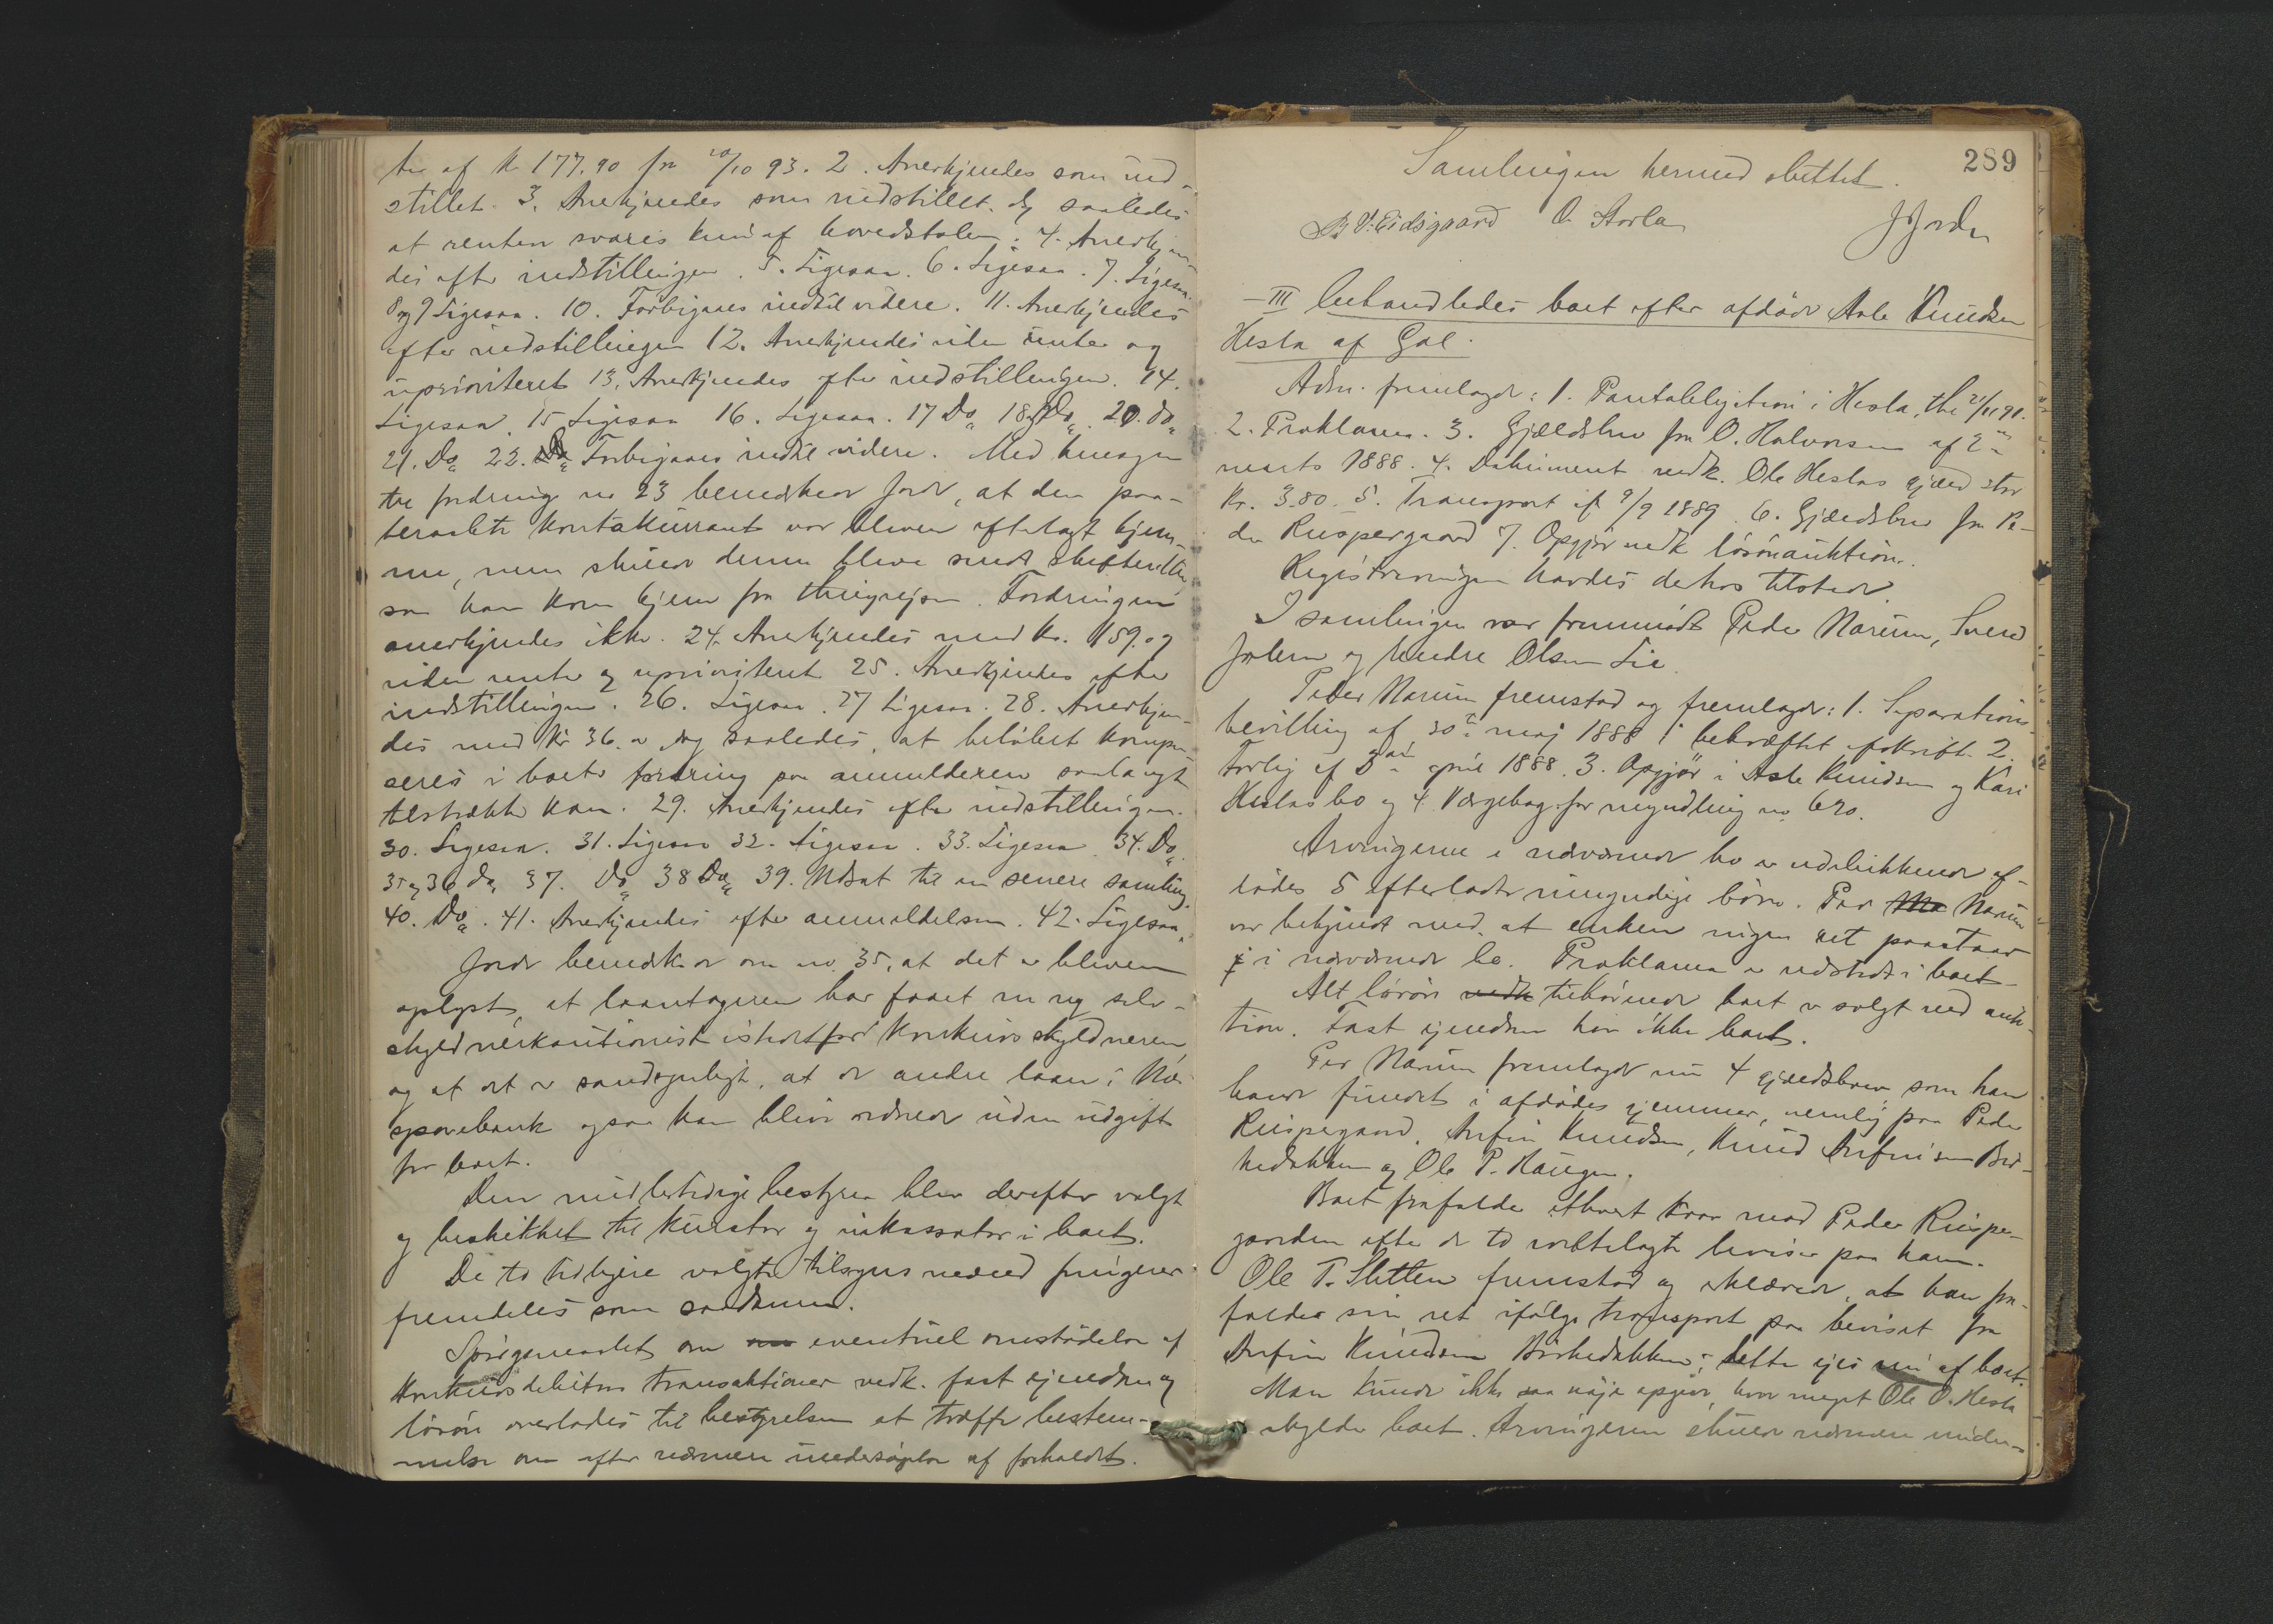 ter af Kr 177.90 fra 20/10 93. 2. Anerkjendes som ind-
stillet. 3. Anerkjendes som indstillet, dog saaledes
at renten svares kun af hovedstolen. 4. Anerkjen-
des efter indstillingen. 5. Ligesaa. 6. Ligesaa. 7. Ligesaa.
8 og 9 Ligesaa. 10. Forbigaaes indtil videre. 11. Anerkjendes
efter indstillingen 12. Anerkjendes uden renter og
uprioriteret 13. Anerkjendes efter indstillingen. 14.
Ligesaa. 15 Ligesaa 16. Ligesaa. 17 Do 18 Do. 20. do
21. Do 22. Forbigaaes indtil videre. Med hensyn
til fordring no 23 bemerkede Jorde, at den paa-
beraabte kontokurant var bleven efterlagt hjem-
me, men skulde denne blive sendt skifteretten,
saa han kom hjem fra thingrejsen. Fordringen
anerkjendes ikke. 24. Anerkjendes med Kr. 159.07
uden renter og uprioriteret 25. Anerkjendes efter
indstillingen. 26. Ligesaa. 27 Ligesaa. 28. Anerkjen-
des med Kr 36.00 dog saaledes, at beløbet kompen-
seres i boets fordring paa anmelderen saalangt
tilstrække kan. 29. Anerkjendes efter indstillingen.
30. Ligesaa. 31. Ligesaa 32. Ligesaa. 33. Ligesaa. 34. Do.
35 og 36 do 37. Do 38 Do 39. Udsat til en senere samling.
40. Do. 41. Anerkjendes efter anmeldelsen. 42. Ligesaa.
Jorde bemerkede om no. 35, at det er bleven
oplyst, at laantageren har faaet en ny selv-
skyldnerkautionist istedetfor konkursskyldneren
og at det er sandsynligt, at de andre laan i Næs
sparebank ogsaa kan blive ordnede uden udgift
for boet.
Den midlertidige bestyrer blev derefter valgt
og beskikket til kurator og inkassator i boet.
De to tidligere valgte tilsynsmænd fungerer
fremdeles som saadanne.
Spørgsmaalet om eventuel omstødelse af
konkursdebitors transaktioner vedk. fast ejendom og
løsøre overlades til bestyrelsen at træffe bestem-
melse om efter nærmere undersøgelse af forholdet.
289
Samlingen hermed sluttet.
Eidsgaard O. Storla JJorde
III behandledes boet efter afdøde Asle Knudsen
Hesla af Gol.
Adm. fremlagde: 1. Pantobligation i Hesla, thl 21/11 91.
2. Proklama. 3. Gjældsbrev fra O. Halvorsen af 2den
marts 1888. 4. Dokument vedk. Ole Heslas gjæld stor
Kr. 380. 5. Transport af 9/9 1889. 6. Gjældsbrev fra Pe-
der Ruspergaard 7. Opgjør vedk løsøreauktion.
Registreringen havdes derhos tilstede.
I samlingen var fremmødt Peder Narum, Svend
og Hendre Olsen Lie.
Peder Narum fremstod og fremlagde: 1. Separations-
bevilling af 30te maj 1888 i bekræftet afskrift. 2.
Forlig af 3die april 1888. 3. Opgjør i Asle Knudsen og Kari
Heslas bo og 4. Værgebog for myndling no 620.
Arvingerne i nærværende bo er udelukkende af-
dødes 5 efterladte umyndige børn. Per Narum
var bekjendt med, at enken ingen ret paastaar
i nærværende bo. Proklama er udstedt i boet.
Alt løsøre tilhørende boet er solgt ved auk-
tion. Fast ejendom har ikke boet.
Per Narum fremlagde nu 4 gjældsbreve, som han
havde fundet i afdødes gjemmer, nemlig paa Peder
Ruspergaard, Anfin Knudsen, Knud Anfinsen Bir-
kedokken og Ole P. Haugen.
Boet frafalder ethvert krav mod Peder Rusper-
gaarden efter de to ovbtelagte beviser paa ham.
Ole T. Sletten fremstod og erklærede, at han fra-
falder sin ret ifølge transport paa beviset fra
Anfin Knudsen Birkedokken; dette ejes nu af boet.
Man kunde ikke saa nøje opgive, hvor meget Ole O. Hesla
skylder boet. Arvingerne skulde nærmere under-